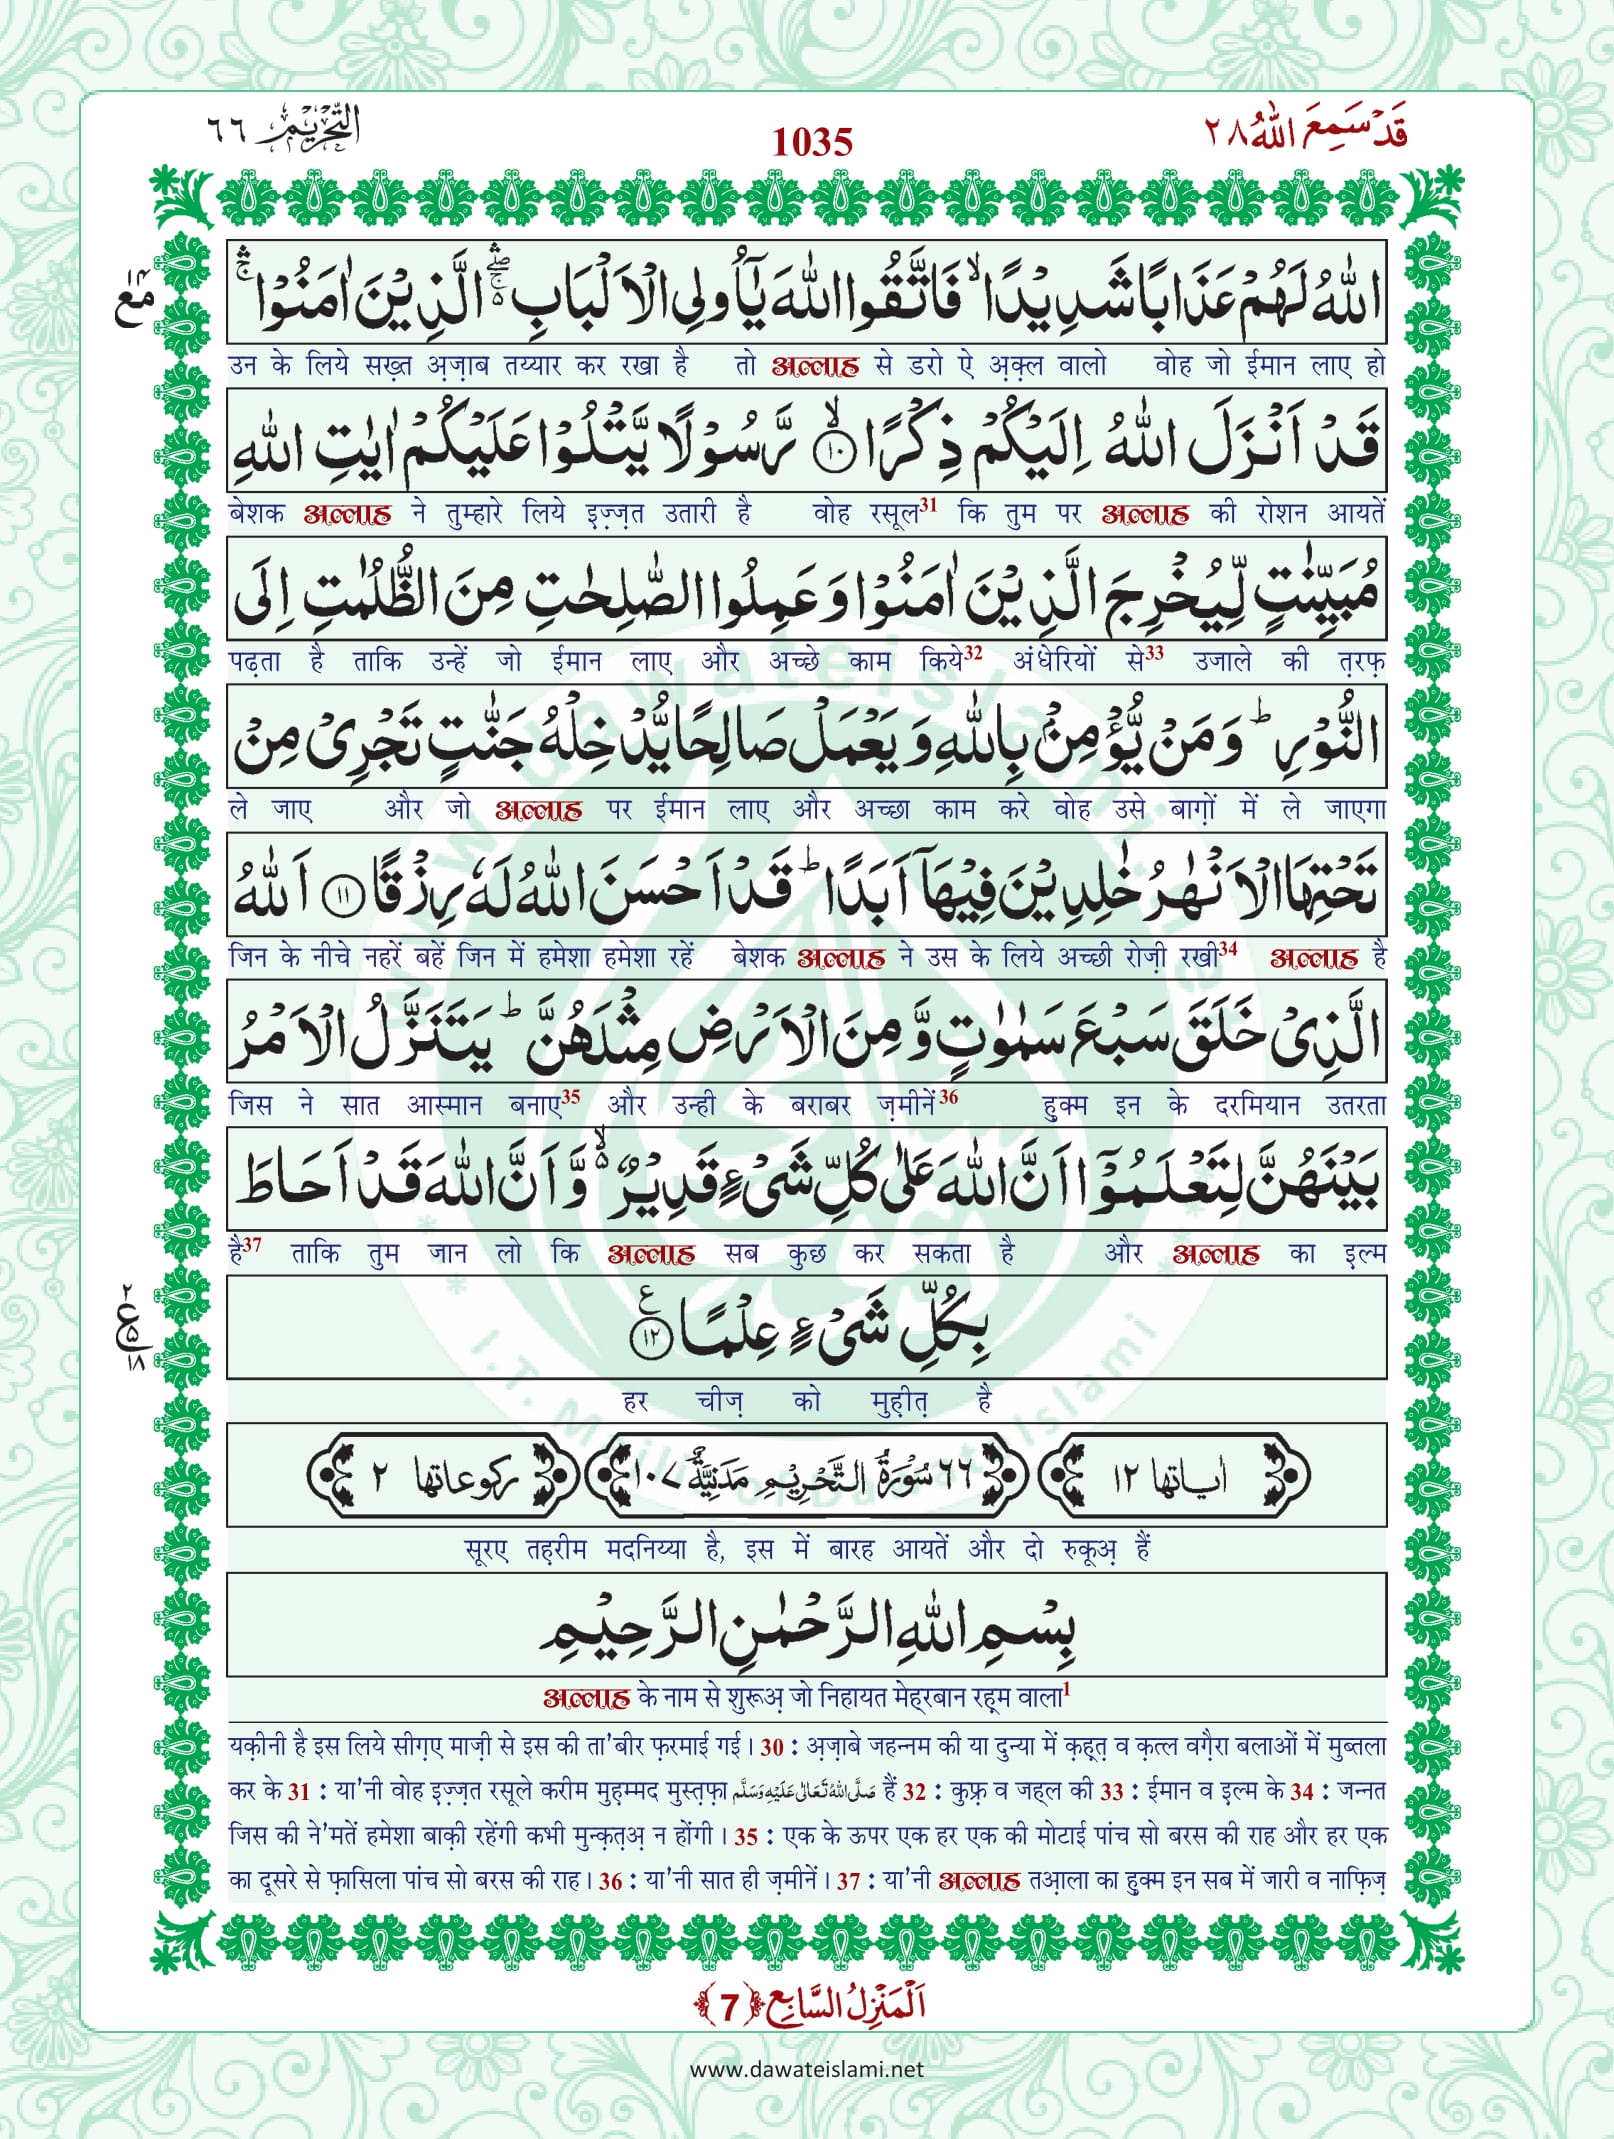 التحریم ٦٦
1035
قَدْ سَمِعَ اللّٰهُ ٢٨
اللّٰهُ لَهُمْ عَذَابًا شَدِیْدًاۙ فَاتَّقُوا اللّٰهَ یٰۤاُولِی الْاَلْبَابِ ﳝ الَّذِیْنَ اٰمَنُوْاﳝ
उन के लिये सख़्त अ़ज़ाब तय्यार कर रखा है तो अल्लाह से डरो ऐ अ़क़्ल वालो वोह जो ईमान लाए हो
قَدْ اَنْزَلَ اللّٰهُ اِلَیْكُمْ ذِكْرًاۙ ﴿١٠﴾ رَّسُوْلًا یَّتْلُوْا عَلَیْكُمْ اٰیٰتِ اللّٰهِ
बेशक अल्लाह ने तुम्हारे लिये इ़ज़्ज़त उतारी है वोह रसूल31 कि तुम पर अल्लाह की रोशन आयतें
مُبَیِّنٰتٍ لِّیُخْرِجَ الَّذِیْنَ اٰمَنُوْا وَ عَمِلُوا الصّٰلِحٰتِ مِنَ الظُّلُمٰتِ اِلَى
पढ़ता है ताकि उन्हें जो ईमान लाए और अच्छे काम किये32 अंधेरियों से33 उजाले की त़रफ़
النُّوْرِؕ وَ مَنْ یُّؤْمِنْۢ بِاللّٰهِ وَ یَعْمَلْ صَالِحًا یُّدْخِلْهُ جَنّٰتٍ تَجْرِیْ مِنْ
ले जाए और जो अल्लाह पर ईमान लाए और अच्छा काम करे वोह उसे बाग़ों में ले जाएगा
تَحْتِهَا الْاَنْهٰرُ خٰلِدِیْنَ فِیْهَاۤ اَبَدًاؕ قَدْ اَحْسَنَ اللّٰهُ لَهٗ رِزْقًا ﴿١١﴾ اَللّٰهُ
जिन के नीचे नहरें बहें जिन में हमेशा हमेशा रहें बेशक अल्लाह ने उस के लिये अच्छी रोज़ी रखी34 अल्लाह है
الَّذِیْ خَلَقَ سَبْعَ سَمٰوٰتٍ وَّ مِنَ الْاَرْضِ مِثْلَهُنَّؕ یَتَنَزَّلُ الْاَمْرُ
जिस ने सात आस्मान बनाए35 और उन्ही के बराबर ज़मीनें36 हु़क्म इन के दरमियान उतरता
بَیْنَهُنَّ لِتَعْلَمُوْۤا اَنَّ اللّٰهَ عَلٰى كُلِّ شَیْءٍ قَدِیْرٌ ﳔ وَّ اَنَّ اللّٰهَ قَدْ اَحَاطَ
है37 ताकि तुम जान लो कि अल्लाह सब कुछ कर सकता है और अल्लाह का इ़ल्म
بِكُلِّ شَیْءٍ عِلْمًا ﴿١٢﴾ ع
हर चीज़ को मुह़ीत़ है
اٰیاتها ١٢
٦٦ سُوْرَةُ التَّحْرِیْمِ مَدَنِیَّةٌ ١٠٧
رکوعاتها ٢
सूरए तह़रीम मदनिय्या है, इस में बारह आयतें और दो रुकूअ़ हैं
بِسْمِ اللّٰهِ الرَّحْمٰنِ الرَّحِیْمِ
अल्लाह के नाम से शुरूअ़ जो निहायत मेहरबान रह़्म वाला1
यक़ीनी है इस लिये सीग़ए माज़ी से इस की ता'बीर फ़रमाई गई। 30 : अ़ज़ाबे जहन्नम की या दुन्या में क़ह़त़ व क़त्ल वग़ैरा बलाओं में मुब्तला
कर के 31 : या'नी वोह इ़ज़्ज़त रसूले करीम मुह़म्मद मुस्त़फ़ा صَلَّى اللّٰهُ تَعَالٰى عَلَیْهِ وَسَلَّم हैं 32 : कुफ़्र व जह्ल की 33 : ईमान व इ़ल्म के 34 : जन्नत
जिस की ने'मतें हमेशा बाक़ी रहेंगी कभी मुन्क़त़अ़ न होंगी। 35 : एक के ऊपर एक हर एक की मोटाई पांच सो बरस की राह और हर एक
का दूसरे से फ़ासिला पांच सो बरस की राह। 36 : या'नी सात ही ज़मीनें। 37 : या'नी अल्लाह तआ़ला का हु़क्म इन सब में जारी व नाफ़िज़
اَلْمَنْزِلُ السَّابِع ﴿7﴾
www.dawateislami.net